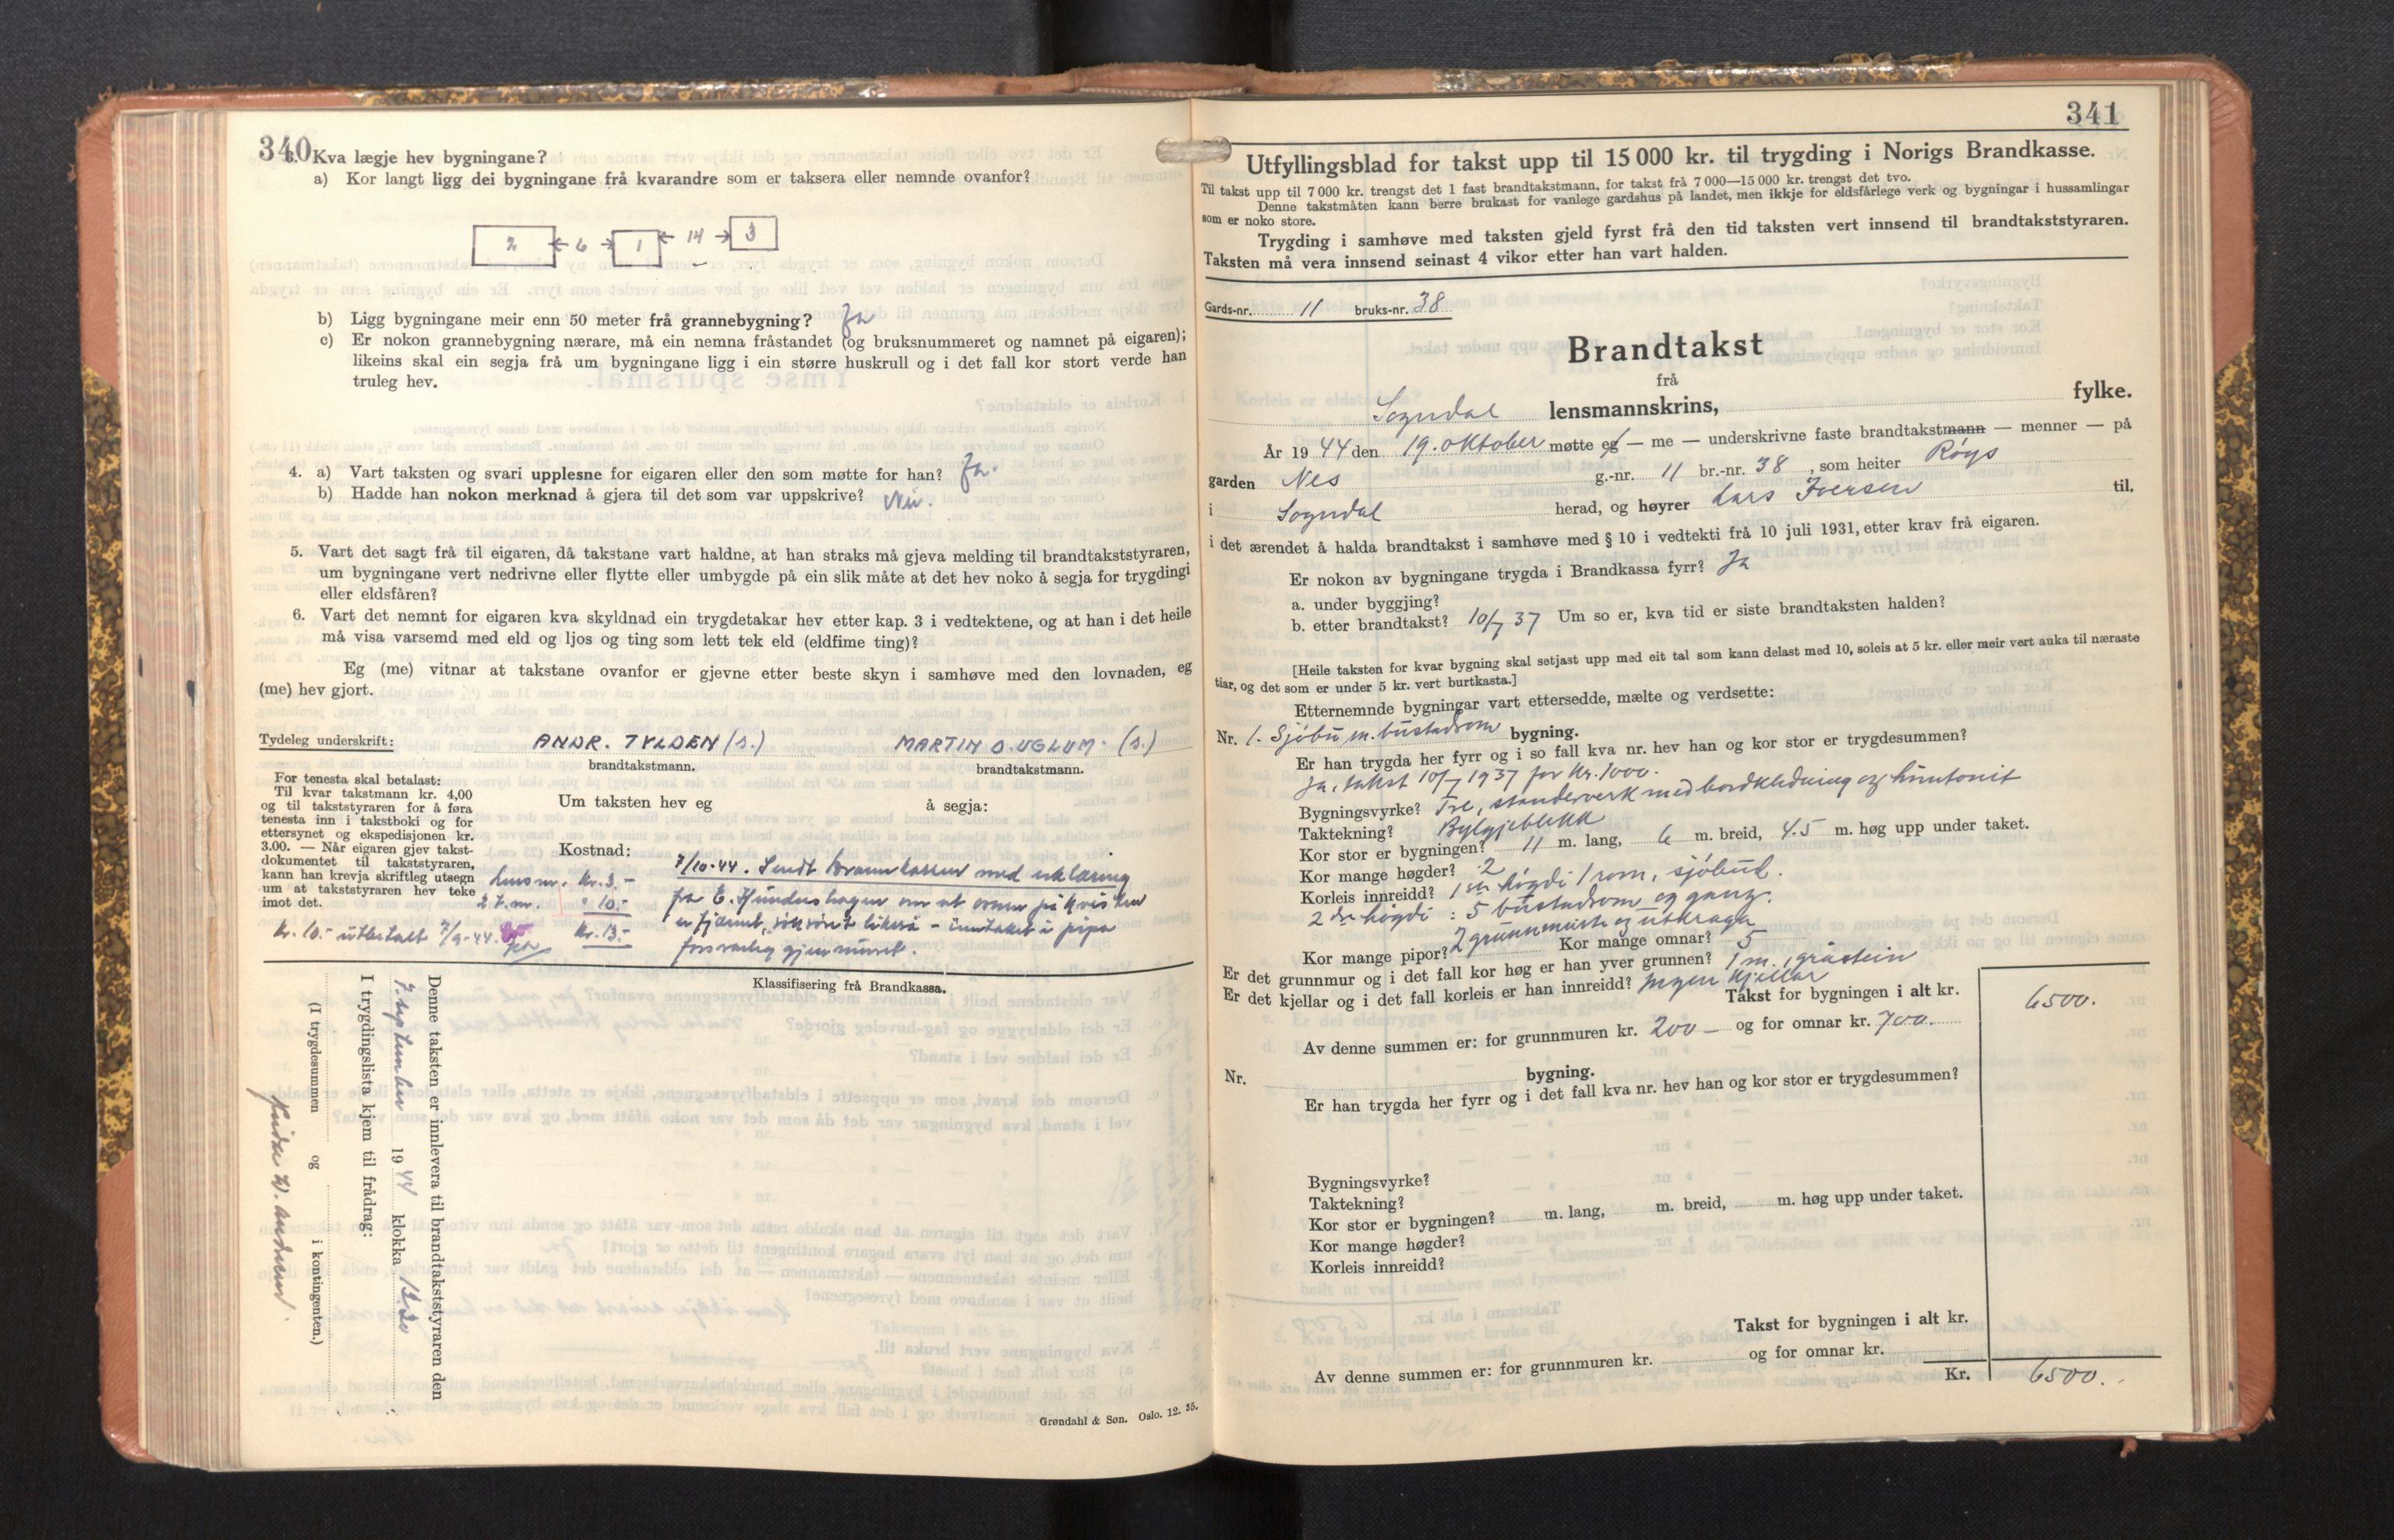 340
3. Kva lægje hev bygningane?
a) Kor langt ligg dei bygningane frå kvarandre som er taksera eller nemnde ovanfor?
2 6 1 14 3
b) Ligg bygningane meir enn 50 meter frå grannebygning? Ja
c) Er nokon grannebygning nærare, må ein nemna fråstandet (og bruksnummeret og namnet på eigaren);
likeins skal ein segja frå um bygningane ligg i ein større huskrull og i det fall kor stort verde han
truleg hev.
4. a) Vart taksten og svari upplesne for eigaren eller den som møtte for han? Ja.
b) Hadde han nokon merknad å gjera til det som var uppskrive? Nei.
5. Vart det sagt frå til eigaren, då takstane vart haldne, at han straks må gjeva melding til brandtakststyraren,
um bygningane vert nedrivne eller flytte eller umbygde på ein slik måte at det hev noko å segja for trygdingi
eller eldsfåren?
6. Vart det nemnt for eigaren kva skyldnad ein trygdetakar hev etter kap. 3 i vedtektene, og at han i det heile
må visa varsemd med eld og ljos og ting som lett tek eld (eldfime ting)?
Eg (me) vitnar at takstane ovanfor er gjevne etter beste skyn i samhøve med den lovnaden, eg
(me) hev gjort.
Tydeleg underskrift: ANDR. TYLDEN (s.) MARTIN O. UGLUM. (s.)
brandtakstmann. brandtakstmann.
For tenesta skal betalast:
Til kvar takstmann kr. 4,00
og til takststyraren for å føra
tenesta inn i takstboki og for
ettersynet og ekspedisjonen kr.
3.00. — Når eigaren gjev takst-
dokumentet til takststyraren,
kann han krevja skriftleg utsegn
um at takststyraren hev teke
imot det.
Um taksten hev eg å segja:
Kostnad:
lensm. kr. 3.-
2 t.m. " 10.-
kr. 13.-
kr. 10.- utbetalt 7/9-44.
7/10-44. Sendt brannkassen med erklæring
fra E. Hundershagen om at ovnen på kvisten
er fjernet, likeså - inntaket i pipa
forsvarleg gjenmuret.
Klassifisering frå Brandkassa.
Denne taksten er innlevera til brandtakststyraren den
7. september 1944 klokka 12.30
I trygdingslista kjem til frådrag:
(I trygdesummen og i kontingenten.)
Grøndahl & Søn. Oslo. 12. 35.
341
Utfyllingsblad for takst upp til 15 000 kr. til trygding i Norigs Brandkasse.
Til takst upp til 7 000 kr. trengst det 1 fast brandtakstmann, for takst frå 7 000—15 000 kr. trengst det tvo.
Denne takstmåten kann berre brukast for vanlege gardshus på landet, men ikkje for eldsfårlege verk og bygningar i hussamlingar
som er noko store.
Trygding i samhøve med taksten gjeld fyrst frå den tid taksten vert innsend til brandtakststyraren.
Taksten må vera innsend seinast 4 vikor etter han vart halden.
Gards-nr. 11 bruks-nr. 38
Brandtakst
frå
Sogndal lensmannskrins, fylke.
År 1944 den 19. oktober møtte eg — me — underskrivne faste brandtakstmann — menner — på
garden Nes g.-nr. 11 br.-nr. 38, som heiter Røys
i Sogndal herad, og høyrer Lars Iversen til,
i det ærendet å halda brandtakst i samhøve med § 10 i vedtekti frå 10 juli 1931, etter krav frå eigaren.
Er nokon av bygningane trygda i Brandkassa fyrr? Ja
a. under byggjing?
b. etter brandtakst? 10/7 37 Um so er, kva tid er siste brandtaksten halden?
[Heile taksten for kvar bygning skal setjast upp med eit tal som kann delast med 10, soleis at 5 kr. eller meir vert auka til næraste
tiar, og det som er under 5 kr. vert burtkasta.]
Etternemnde bygningar vart ettersedde, mælte og verdsette:
Nr. 1. Sjøbu m. bustadrom bygning.
Er han trygda her fyrr og i so fall kva nr. hev han og kor stor er trygdesummen?
Ja, takst 10/7 1937 for kr. 1000.
Bygningsvyrke? Tre, standerverk med bordkledning og huntonit
Taktekning? Bylgjeblekk
Kor stor er bygningen? 11 m. lang, 6 m. breid, 4.5 m. høg upp under taket.
Kor mange høgder? 2
Korleis innreidd? 1ste høgdi 1 rom, sjøbud.
2dre høgdi: 5 bustadrom og gang.
Kor mange pipor? 2 grunnmurte og utkraga Kor mange omnar? 5
Er det grunnmur og i det fall kor høg er han yver grunnen? 1 m., gråstein
Er det kjellar og i det fall korleis er han innreidd? Ingen kjellar
Takst for bygningen i alt kr. 6500.
Av denne summen er: for grunnmuren kr. 200 — og for omnar kr. 700.
Nr. bygning.
Er han trygda her fyrr og i det fall kva nr. hev han og kor stor er trygdesummen?
Bygningsvyrke?
Taktekning?
Kor stor er bygningen? m. lang, m. breid, m. høg upp under taket.
Kor mange høgder?
Korleis innreidd?
Takst for bygningen i alt kr.
Av denne summen er: for grunnmuren kr. og for omnar kr.
Kr. 6500.